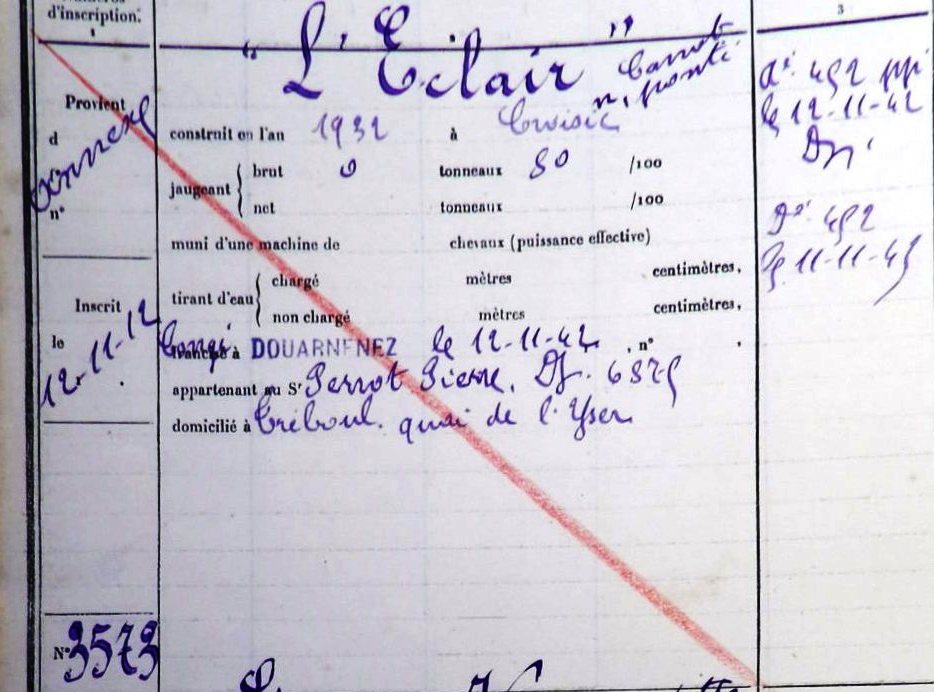 d'inscription.
1
3
" L'Eclair " Canot
n. ponté
Provient
d
Annexe
n°
construit en l'an 1932 à Croisic
jaugeant { brut 0 tonneaux 80 /100
net tonneaux /100
muni d'une machine de chevaux (puissance effective)
tirant d'eau { chargé mètres centimètres.
non chargé mètres centimètres.
Congé à DOUARNENEZ le 12-11-42 , n° .
appartenant au Sr Perrot Pierre. Dz. 6375
domicilié à Tréboul. quai de l'Yser
Inscrit
le
12-11-42
N° 3573
492 pp
le 12-11-42
Dz
492
le 11-11-45